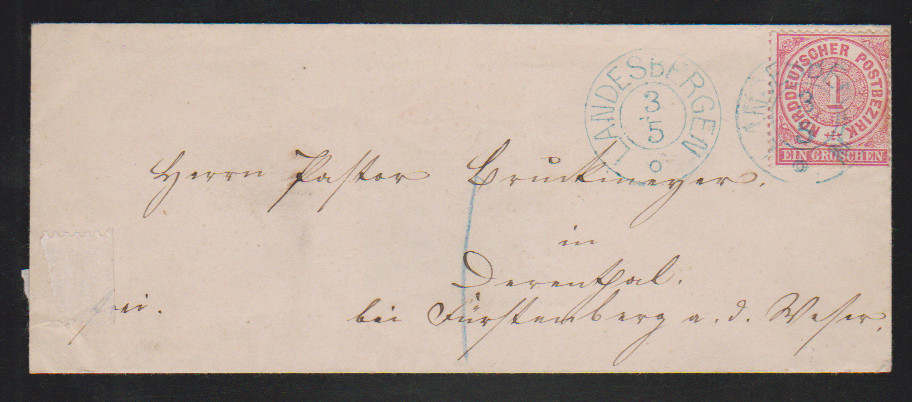 LANDESBERGEN
3
5
NORDDEUTSCHER POSTBEZIRK
1
EIN GROSCHEN
Herrn Pastor Bruckmeyer.
in
Derenthal.
bei Fürstenberg a. d. Weser.
frei.